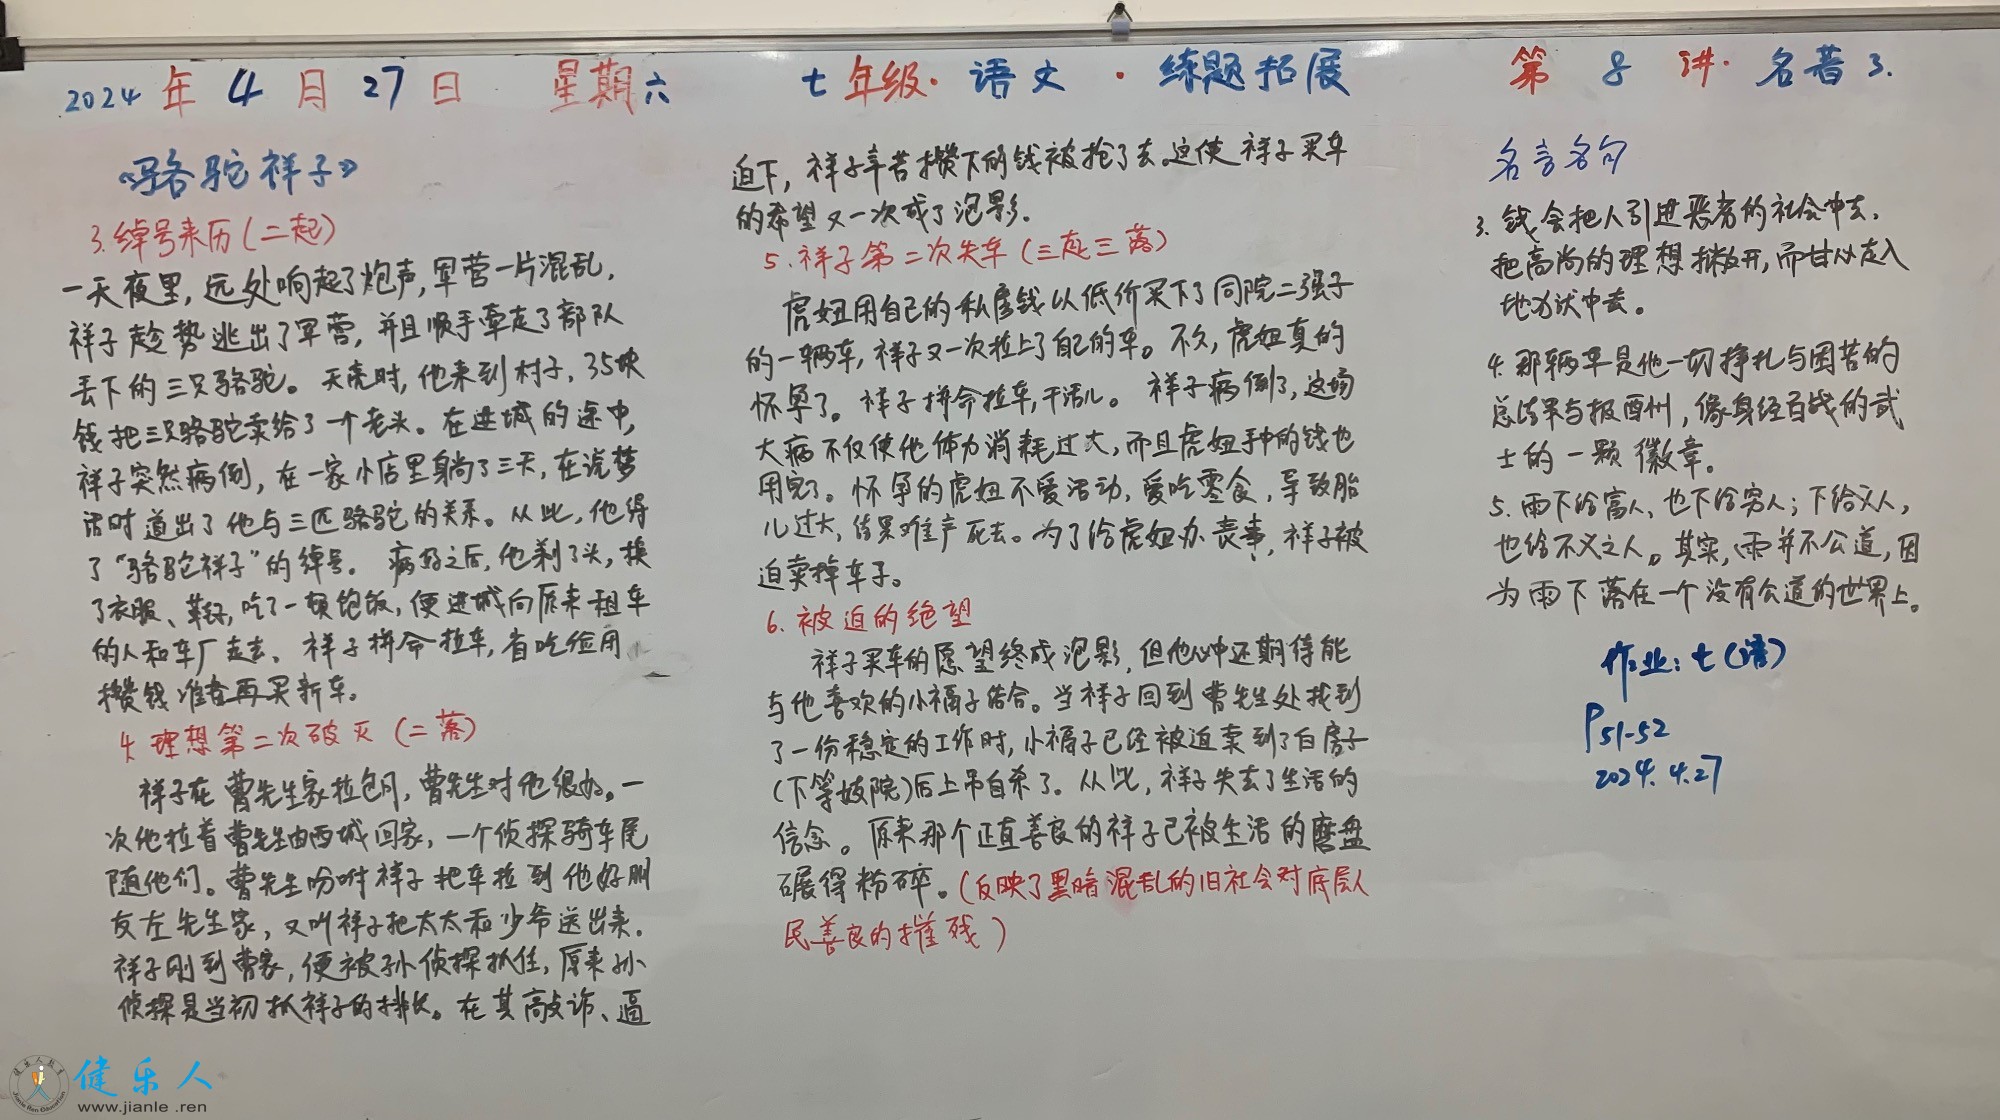 2024年4月27日 星期六 七年级·语文·练题拓展 第8讲·名著3.
《骆驼祥子》
3.绰号来历(二起)
一天夜里,远处响起了炮声,军营一片混乱,
祥子趁势逃出了军营,并且顺手牵走了部队
丢下的三只骆驼。天亮时,他来到村子,35块
钱把三只骆驼卖给了一个老头。在进城的途中,
祥子突然病倒,在一家小店里躺了三天,在说梦
话时道出了他与三匹骆驼的关系。从此,他得
了“骆驼祥子”的绰号。病好之后,他剃了头,换
了衣服、鞋子,吃了一顿饱饭,便进城向原来租车
的人和车厂走去。祥子拼命拉车,省吃俭用
攒钱准备再买新车。
4.理想第二次破灭(二落)
祥子在曹先生家拉包月,曹先生对他很好。一
次他拉着曹先生由西城回家,一个侦探骑车尾
随他们。曹先生吩咐祥子把车拉到他好朋
友左先生家,又叫祥子把太太和少爷送出来.
祥子刚到曹家,便被孙侦探抓住,原来孙
侦探是当初抓祥子的排长。在其敲诈、逼
迫下,祥子辛苦攒下的钱被抢了去。这使祥子买车
的希望又一次成了泡影.
5.祥子第二次失车(三起三落)
虎妞用自己的私房钱以低价买下了同院二强子
的一辆车,祥子又一次拉上了自己的车。不久,虎妞真的
怀孕了。祥子拼命拉车,干活儿。祥子病倒了,这场
大病不仅使他体力消耗过大,而且虎妞手中的钱也
用完了。怀孕的虎妞不爱活动,爱吃零食,导致胎
儿过大,结果难产死去。为了给虎妞办丧事,祥子被
迫卖掉车子。
6.被迫的绝望
祥子买车的愿望终成泡影,但他心中还期待能
与他喜欢的小福子结合。当祥子回到曹先生处找到
了一份稳定的工作时,小福子已经被迫卖到了白房子
(下等妓院)后上吊自杀了。从此,祥子失去了生活的
信念。原来那个正直善良的祥子已被生活的磨盘
碾得粉碎。(反映了黑暗混乱的旧社会对底层人
民善良的摧残)
名言名句
3.钱会把人引进恶劣的社会中去,
把高尚的理想撇开,而甘心走入
地狱中去。
4.那辆车是他一切挣扎与困苦的
总结果与报酬,像身经百战的武
士的一颗徽章。
5.雨下给富人,也下给穷人;下给义人,
也给不义之人。其实,雨并不公道,因
为雨下落在一个没有公道的世界上。
作业:七(清)
P51-52
2024.4.27
健乐人
www.jianle.ren